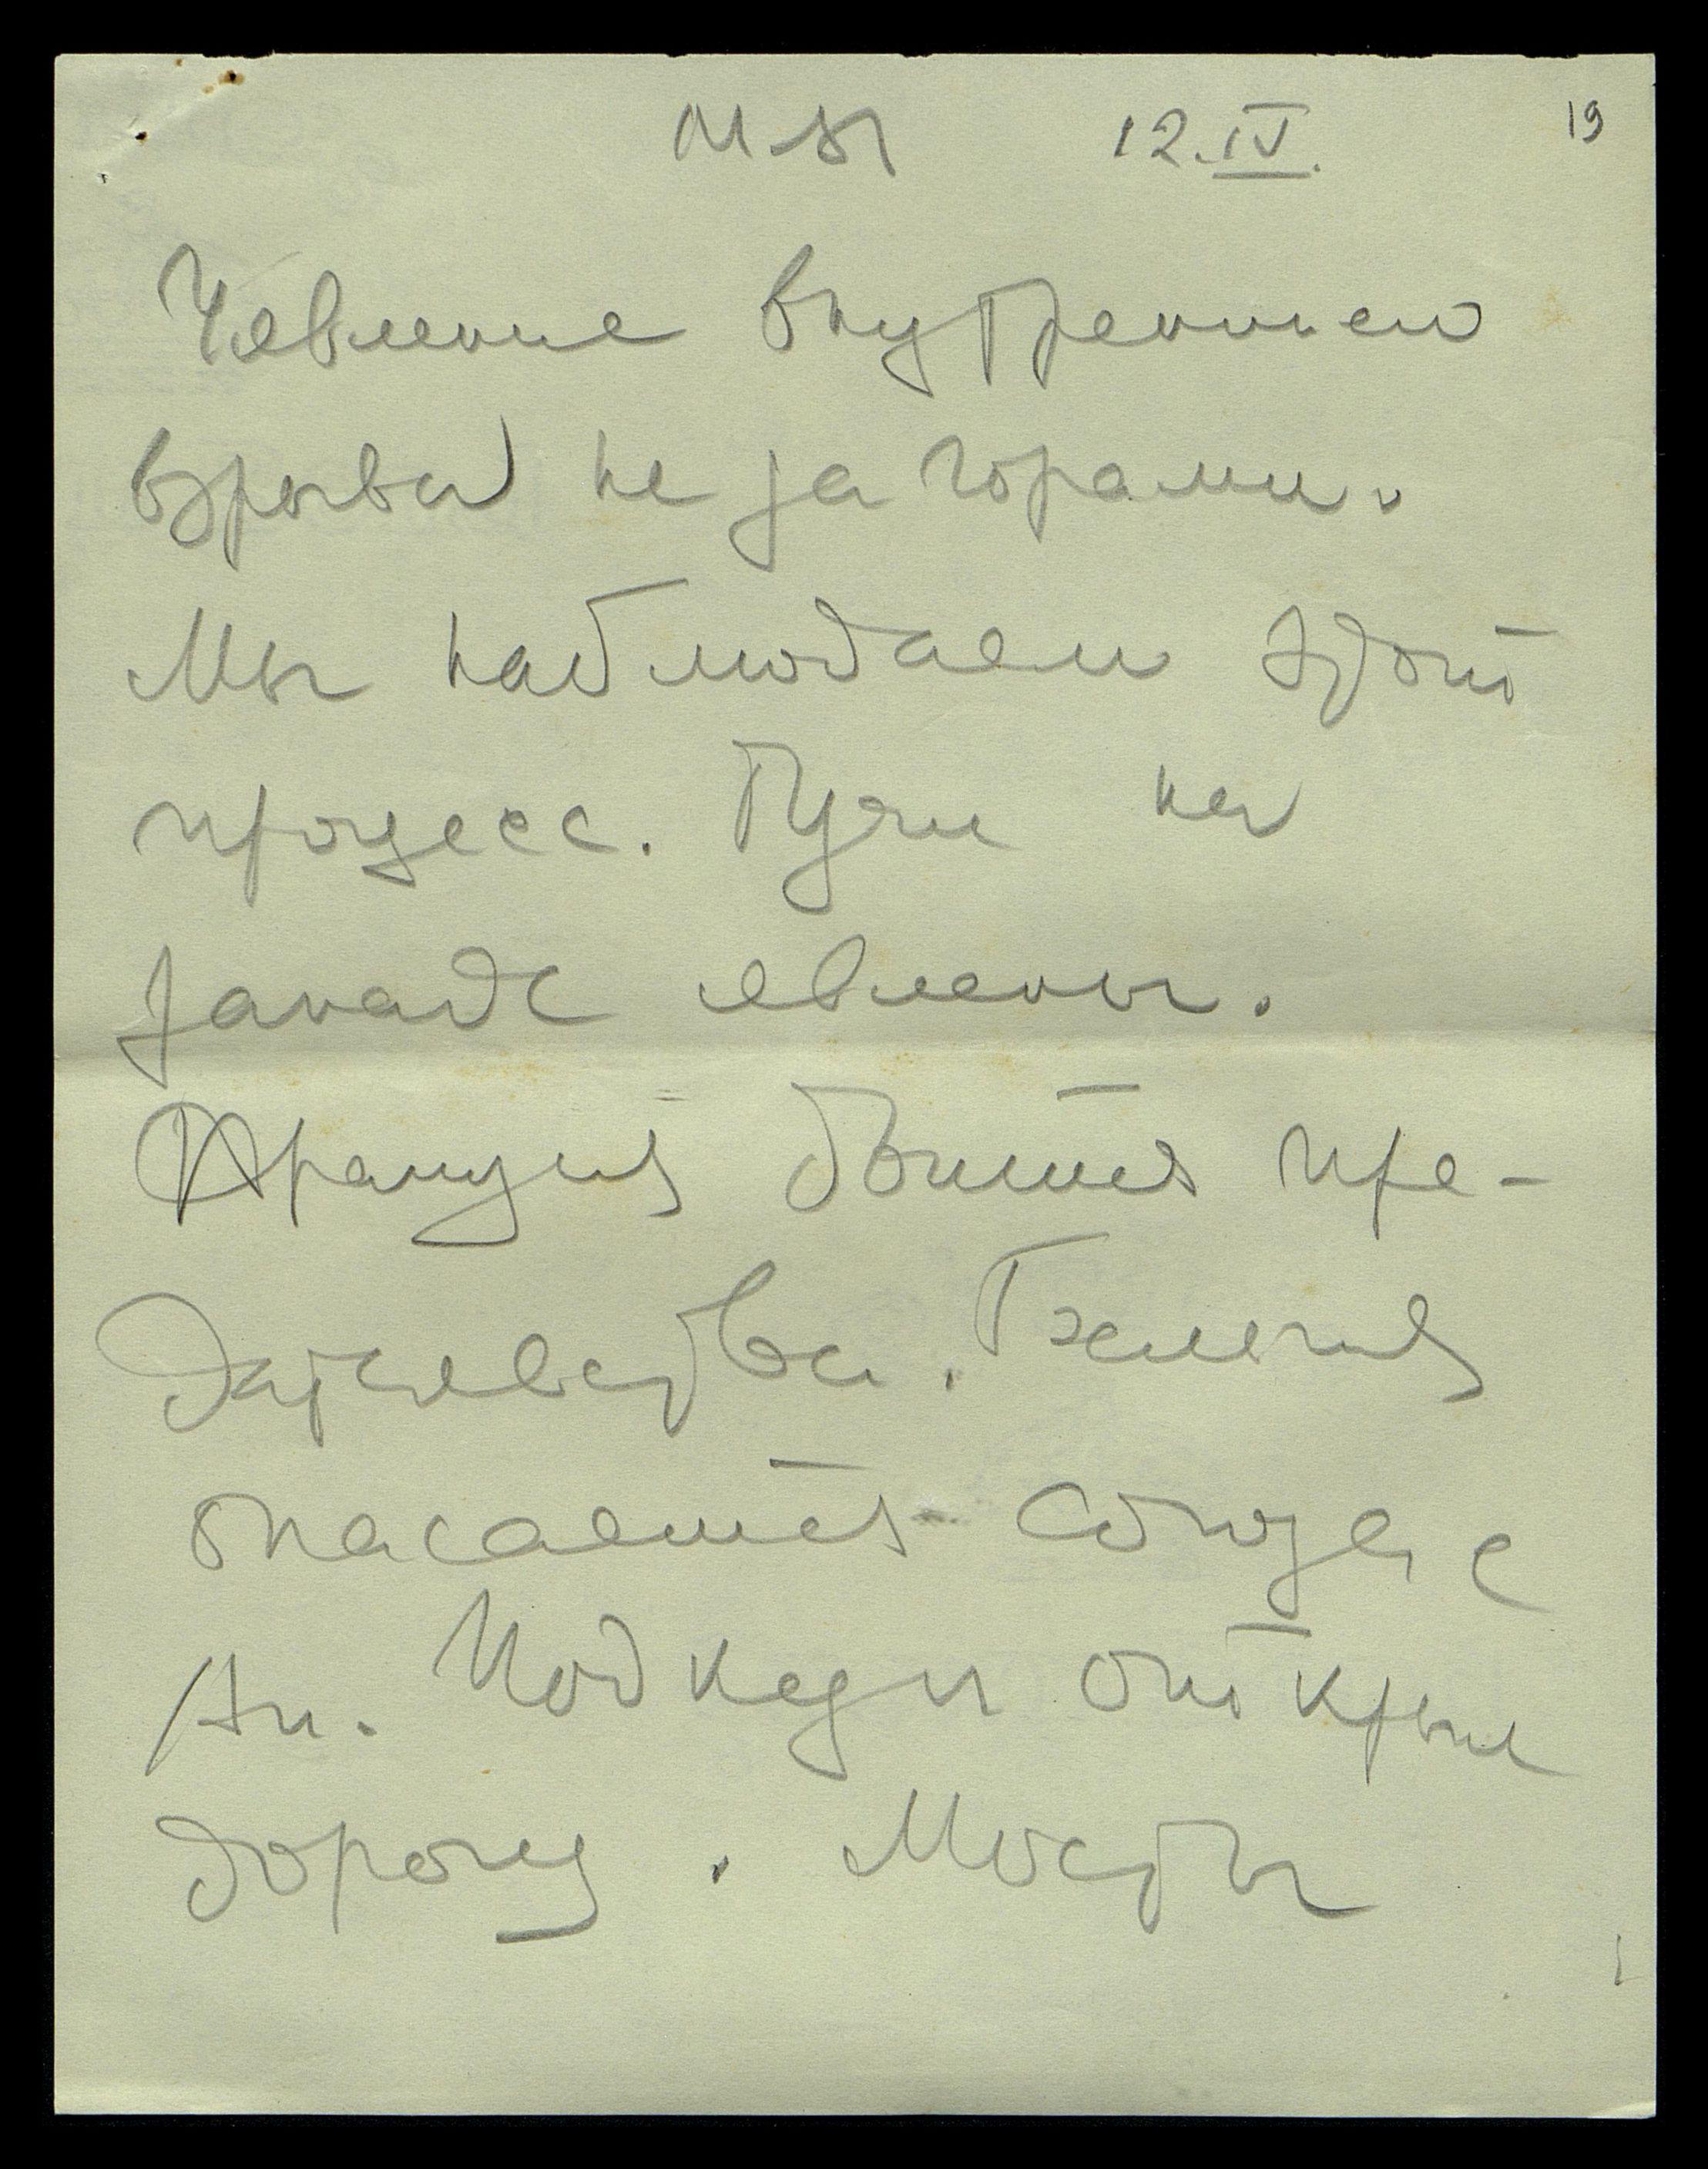 МЫ 12.IV. 19
Явление внутреннего
взрыва не за горами.
Мы наблюдаем этот
процесс. Пути на
западе явлены.
Франция боится пре-
дательства. Бельгия
опасается союза с
Ан. Подкуп открыл
дорогу. Мосты